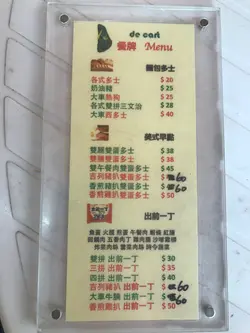 de cari
餐牌 Menu
麵包多士
各式多士 $20
奶油豬 $25
大車熱狗 $25
各式雙拼三文治 $28
大車西多士 $40
美式早點
雙腸雙蛋多士 $38
雙腿雙蛋多士 $38
雙午餐肉雙蛋多士 $45
吉列豬扒雙蛋多士 $60
香煎雞扒雙蛋多士 $60
出前一丁
魚蛋 火腿 煎蛋 午餐肉 腸仔 紅腸
雙拼 出前一丁 $30
三拼 出前一丁 $35
四拼 出前一丁 $40
吉列豬扒 出前一丁 $60
大車牛腩 出前一丁 $60
香煎雞扒 出前一丁 $50